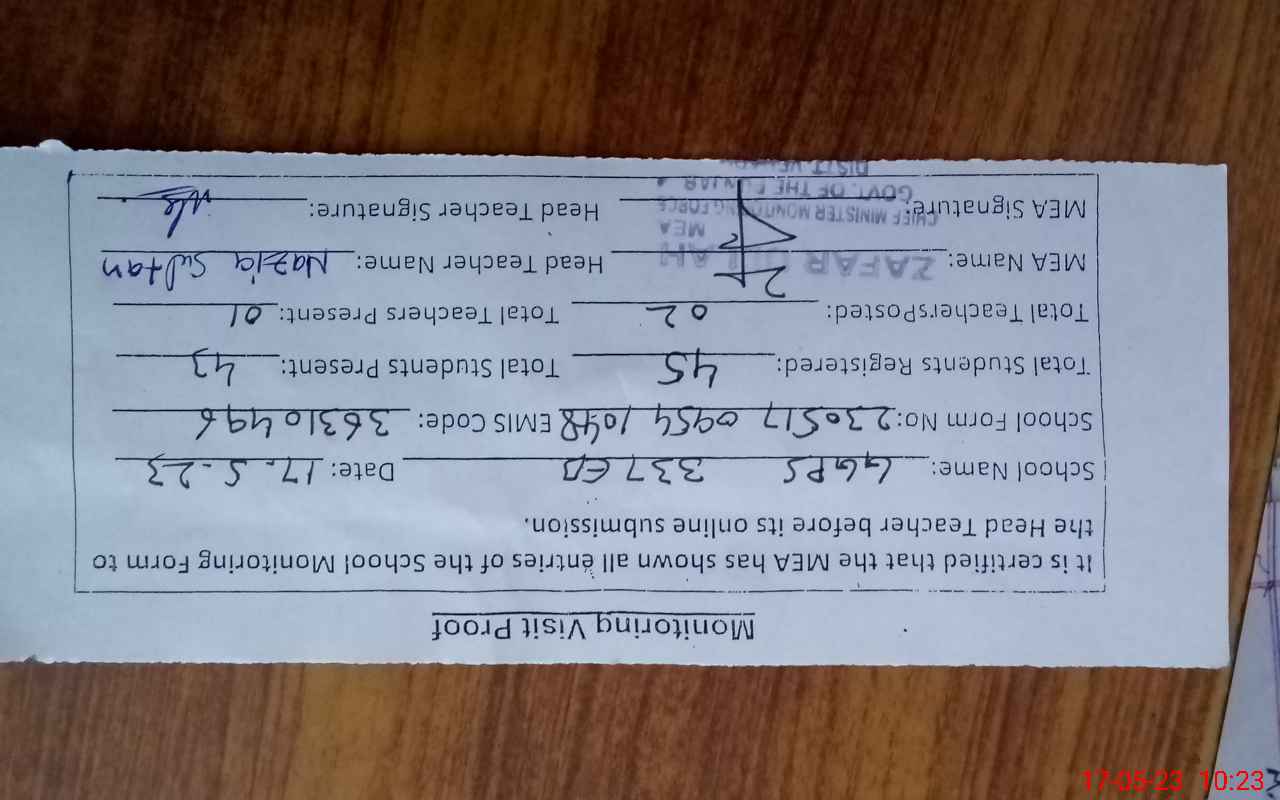 Monitoring Visit Proof
It is certified that the MEA has shown all entries of the School Monitoring Form to
the Head Teacher before its online submission.
School Name: GGPS 337 EB Date: 17.5-23
School Form No: 230517 0954 1048 EMIS Code: 36310496
Total Students Registered: 45 Total Students Present: 43
Total TeachersPosted: 02 Total Teachers Present: 01
MEA Name: ZAFAR ULLAH Head Teacher Name: Nazia Sultan
MEA
MEA Signature: Head Teacher Signature:
CHIEF MINISTER MONITORING FORCE
GOVT. OF THE PUNJAB
DISTT. VEHARI
17-05-23 10:23